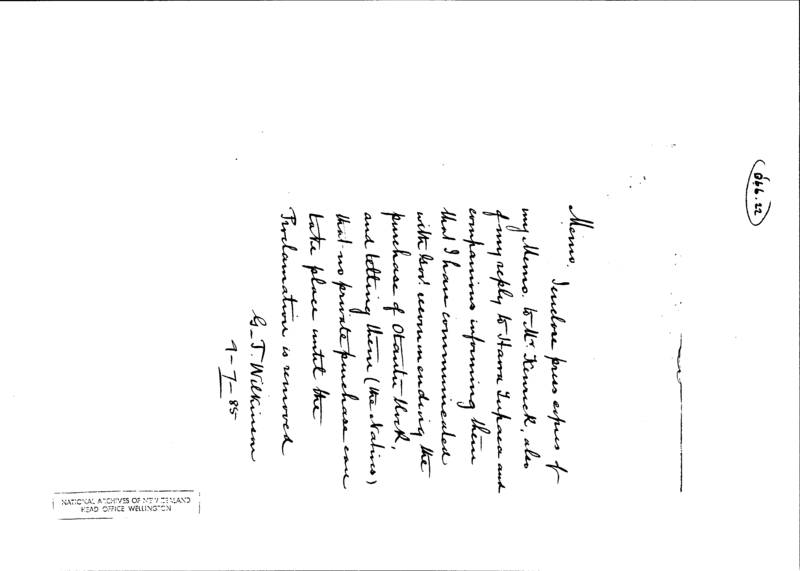 866.22
Memo.
I enclose press copies of
my Memo. to Mr. Kenrick, also
of my reply to Haora Tupaea and
companions informing them
that I have communicated
with Govt. recommending the
purchase of block,
and telling them (the Natives)
that no private purchase can
take place until the
Proclamation is removed
G. T. Wilkinson
9-7-85
NATIONAL ARCHIVES OF NEW ZEALAND
HEAD OFFICE WELLINGTON